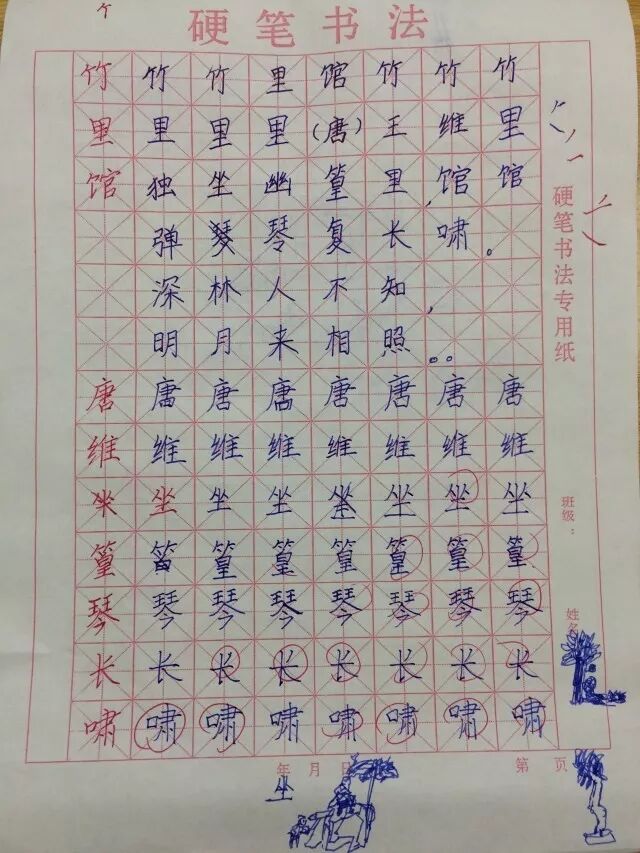 硬笔书法
竹竹竹里馆竹竹竹
里里里里(唐)王维里
馆独坐幽篁里,馆馆
弹琴琴复长啸。
深林人不知,
明月来相照。。
唐唐唐唐唐唐唐唐
维维维维维维维维
坐坐坐坐坐坐坐坐
篁篁篁篁篁篁篁篁
琴琴琴琴琴琴琴琴
长长长长长长长长
啸啸啸啸啸啸啸啸
年 月 日
第 页
坐
硬笔书法专用纸
班级:
姓名